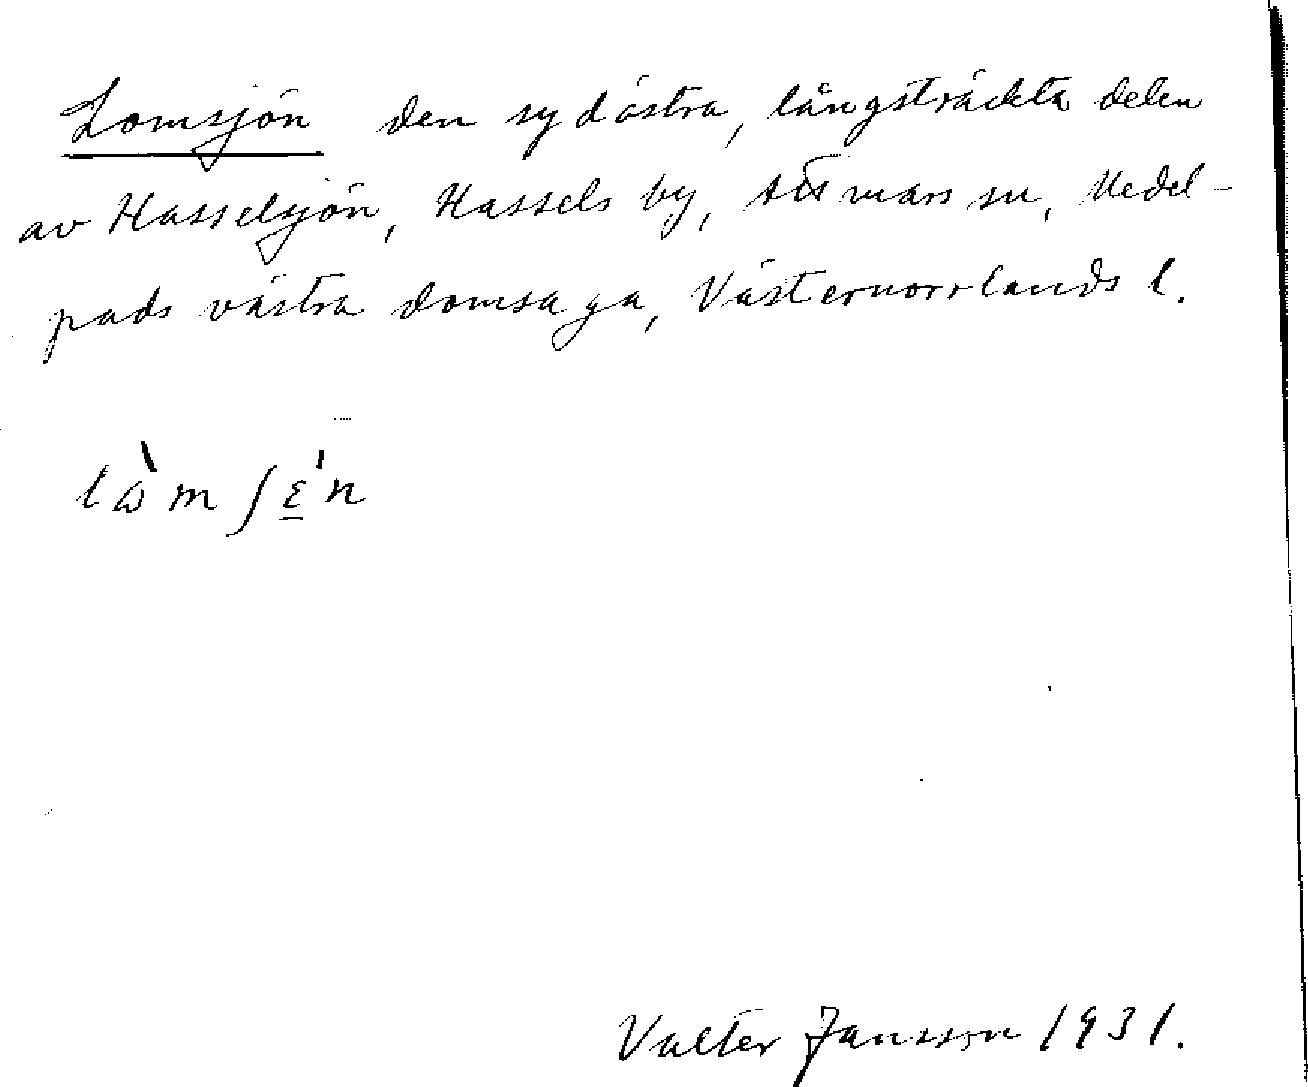 Lomsjön den sydöstra, långsträckta delen
av Hasselsjön, Hassels by, Attmars sn, Medel-
pads västra domsaga, Västernorrlands l.
lὼm ʃε̱'n
Valter Jansson 1931.